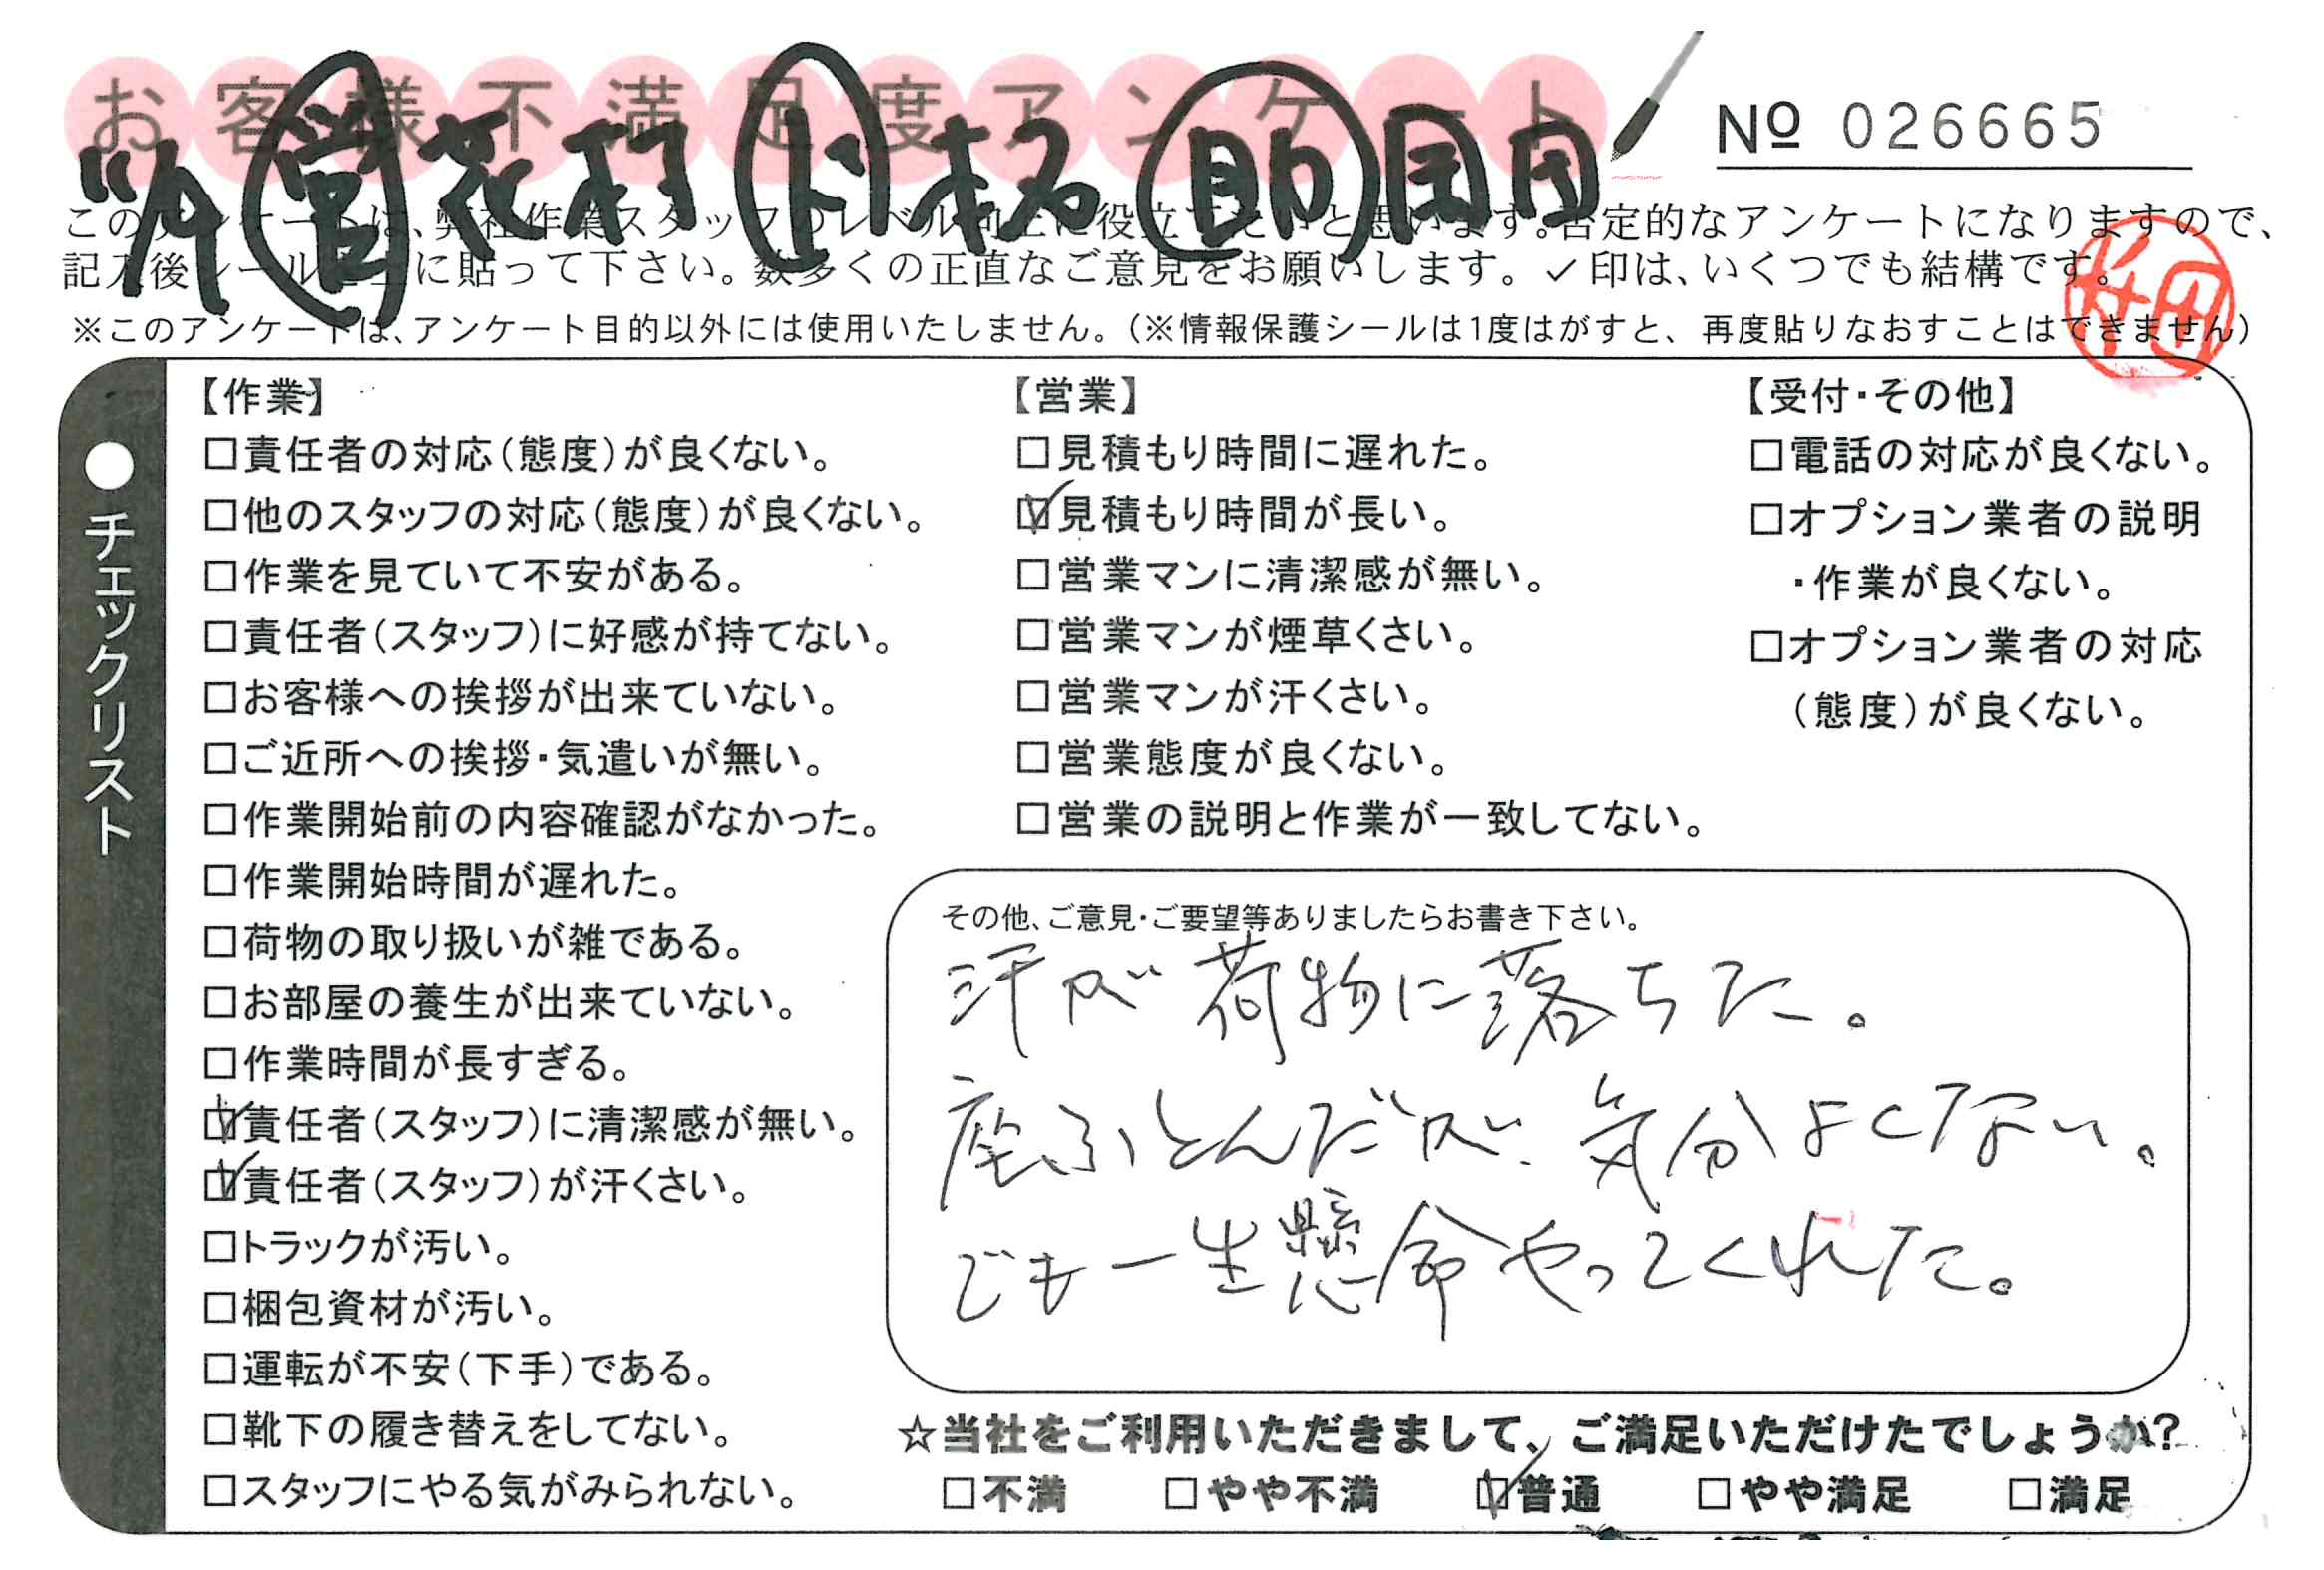 お客様不満足度アンケート
№ 026665
営 花村 ド 杉 助 国 田
このアンケートは、弊社作業スタッフのレベル向上に役立てたいと思います。否定的なアンケートになりますので、
記入後シールを上に貼って下さい。数多くの正直なご意見をお願いします。✓印は、いくつでも結構です。
※このアンケートは、アンケート目的以外には使用いたしません。（※情報保護シールは1度はがすと、再度貼りなおすことはできません）
●チェックリスト
【作業】
□責任者の対応（態度）が良くない。
□他のスタッフの対応（態度）が良くない。
□作業を見ていて不安がある。
□責任者（スタッフ）に好感が持てない。
□お客様への挨拶が出来ていない。
□ご近所への挨拶・気遣いが無い。
□作業開始前の内容確認がなかった。
□作業開始時間が遅れた。
□荷物の取り扱いが雑である。
□お部屋の養生が出来ていない。
□作業時間が長すぎる。
☑責任者（スタッフ）に清潔感が無い。
☑責任者（スタッフ）が汗くさい。
□トラックが汚い。
□梱包資材が汚い。
□運転が不安（下手）である。
□靴下の履き替えをしてない。
□スタッフにやる気がみられない。
【営業】
□見積もり時間に遅れた。
☑見積もり時間が長い。
□営業マンに清潔感が無い。
□営業マンが煙草くさい。
□営業マンが汗くさい。
□営業態度が良くない。
□営業の説明と作業が一致してない。
【受付・その他】
□電話の対応が良くない。
□オプション業者の説明
・作業が良くない。
□オプション業者の対応
（態度）が良くない。
その他、ご意見・ご要望等ありましたらお書き下さい。
汗が荷物に落ちた。
座ふとんだが、気分よくない。
でも一生懸命やってくれた。
☆当社をご利用いただきまして、ご満足いただけたでしょうか？
□不満 □やや不満 ☑普通 □やや満足 □満足